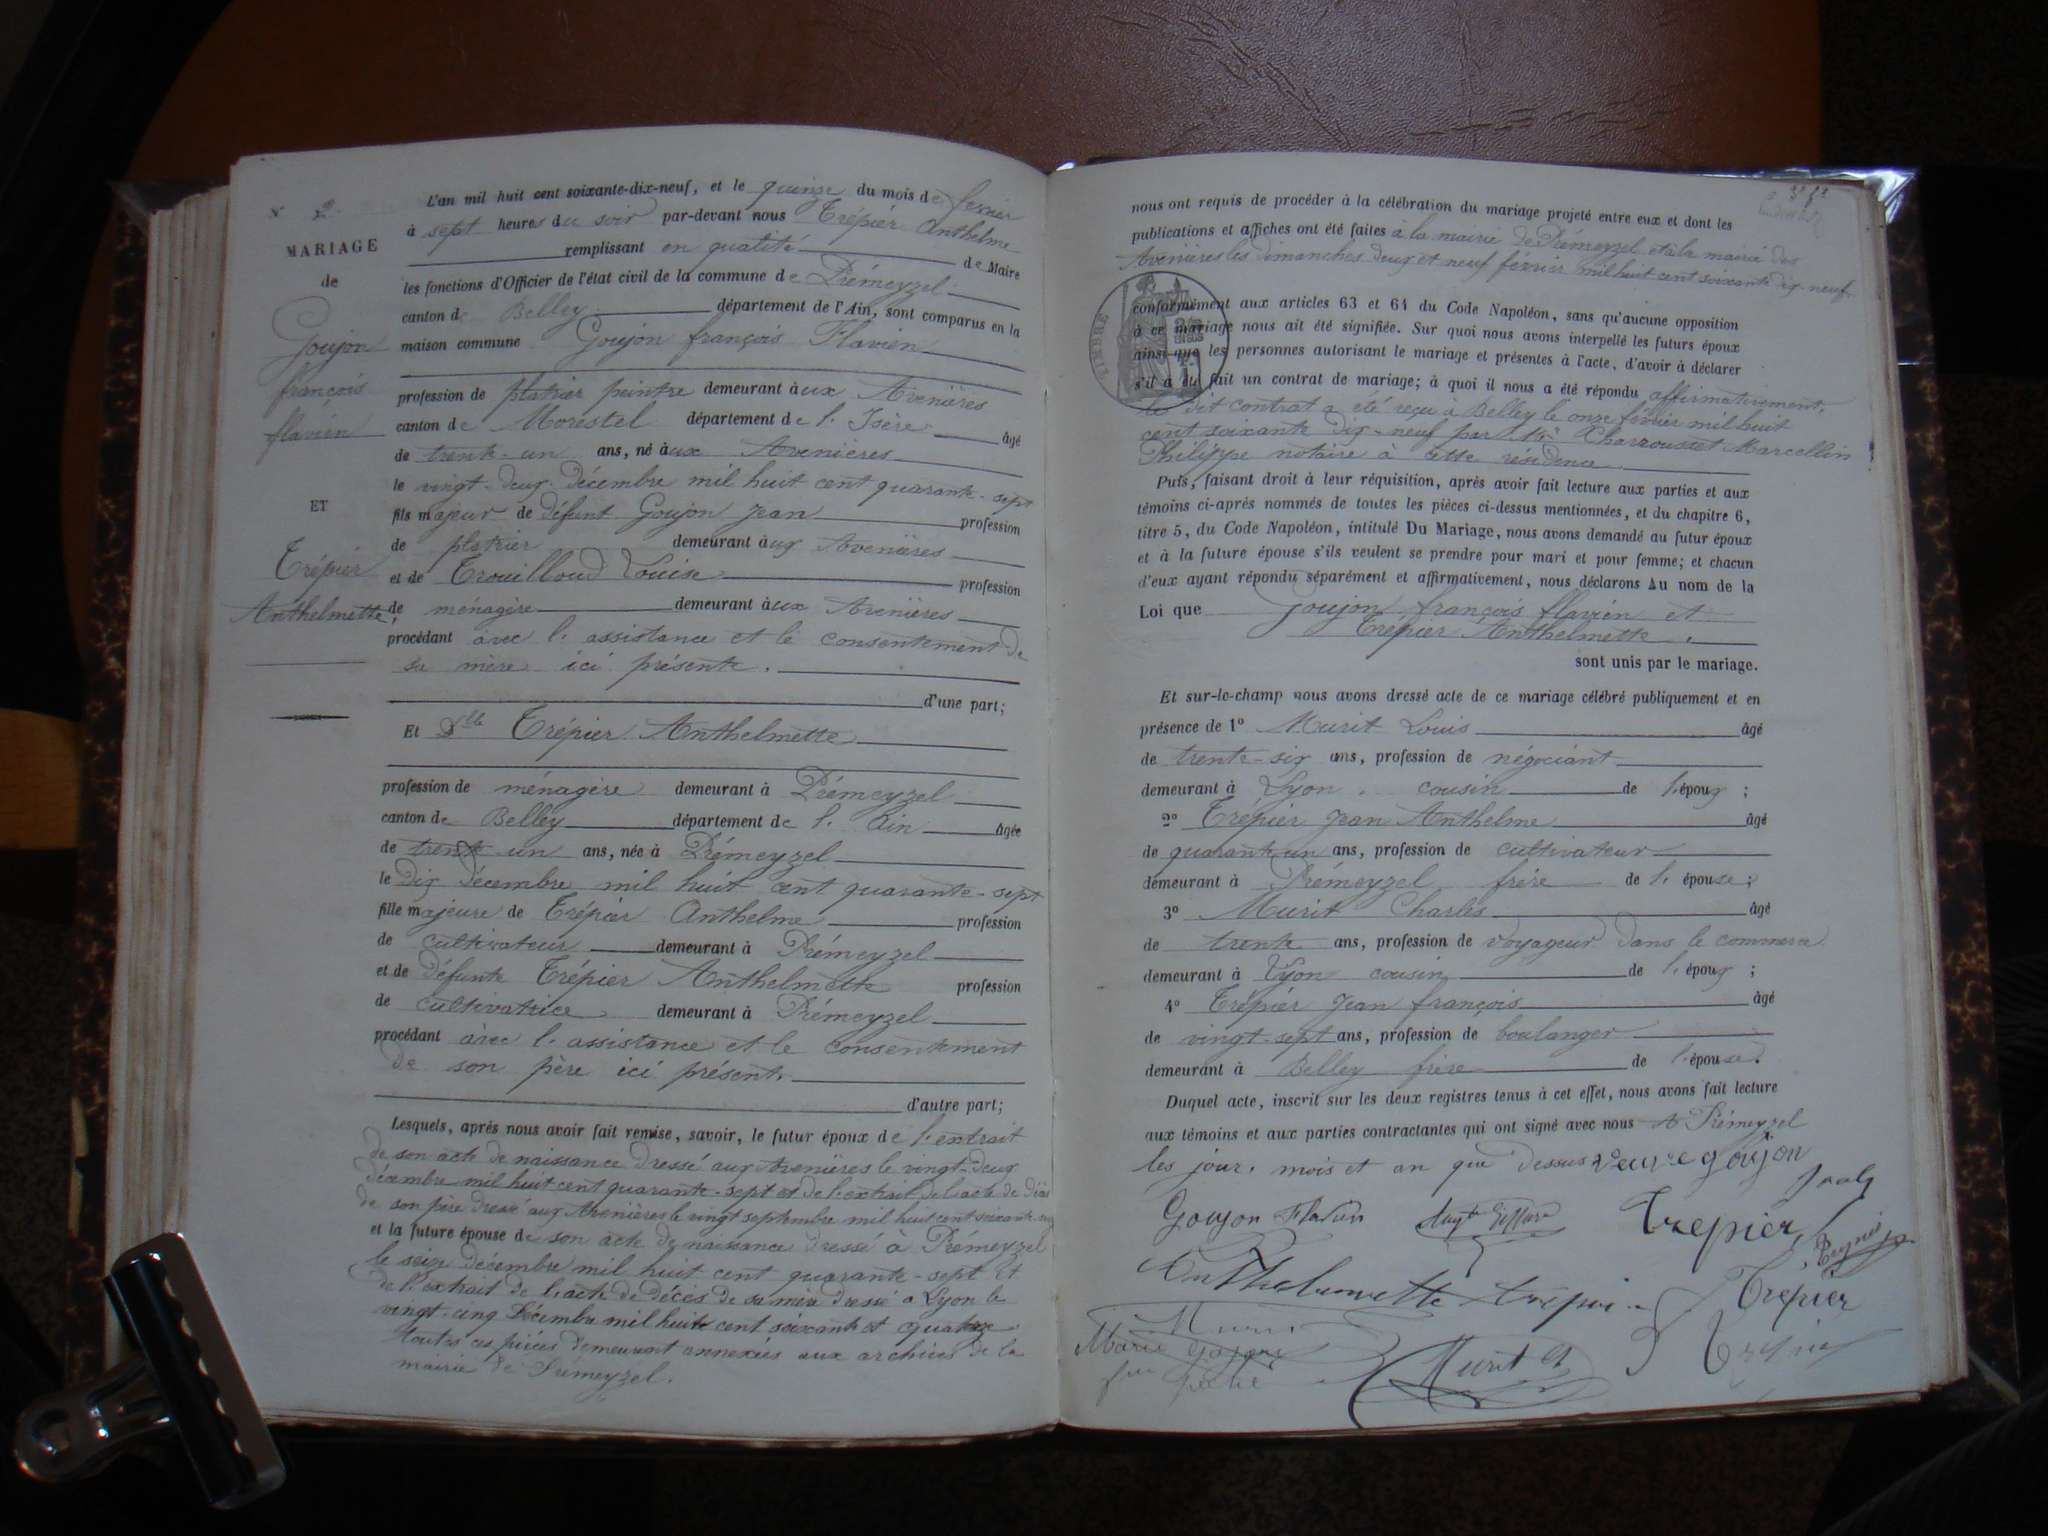 N° 2.
MARIAGE
de
Goujon
françois
flavien
ET
Trépier
Anthelmette,
L'an mil huit cent soixante-dix-neuf, et le quinze du mois de fevrier
à sept heures du soir par-devant nous Trépier Anthelme
remplissant en qualité de Maire
les fonctions d'Officier de l'état civil de la commune de Prémeyzel
canton de Belley département de l'Ain, sont comparus en la
maison commune Goujon françois Flavien
profession de platrier peintre demeurant àux Avenières
canton de Morestel département de l'Isère âgé
de trente-un ans, né àux Avenières
le vingt-deux décembre mil huit cent quarante-sept
fils majeur de défunt Goujon Jean profession
de platrier demeurant àux Avenières
et de Trouilloud Louise profession
de ménagère demeurant àux Avenières
procédant avec l'assistance et le consentement de
sa mère ici présente.
d'une part;
Et Dlle Trépier Anthelmette
profession de ménagère demeurant à Prémeyzel
canton de Belley département de l'Ain âgée
de trente-un ans, née à Prémeyzel
le dix décembre mil huit cent quarante-sept
fille majeure de Trépier Anthelme profession
de cultivateur demeurant à Prémeyzel
et de défunte Trépier Anthelmette profession
de cultivatrice demeurant à Prémeyzel
procédant avec l'assistance et le consentement
de son père ici présent.
d'autre part;
Lesquels, après nous avoir fait remise, savoir, le futur époux de l'extrait
de son acte de naissance dressé aux Avenières le vingt-deux
décembre mil huit cent quarante-sept et de l'extrait de l'acte de décès
de son père dressé aux Avenières le vingt septembre mil huit cent soixante
et la future épouse de son acte de naissance dressé à Prémeyzel
le seize décembre mil huit cent quarante-sept et
de l'extrait de l'acte de décès de sa mère dressé a Lyon le
vingt-cinq Décembre mil huit cent soixante et quatorze
toutes ces pièces demeurent annexées aux archives de la
mairie de Prémeyzel.
nous ont requis de procéder à la célébration du mariage projeté entre eux et dont les
publications et affiches ont été faites à la mairie de Prémeyzel et à la mairie des
Avenières les dimanches deux et neuf février mil huit cent soixante dix-neuf
TIMBRE
conformément aux articles 63 et 64 du Code Napoléon, sans qu'aucune opposition
à ce mariage nous ait été signifiée. Sur quoi nous avons interpellé les futurs époux
ainsi que les personnes autorisant le mariage et présentes à l'acte, d'avoir à déclarer
s'il a été fait un contrat de mariage; à quoi il nous a été répondu affirmativement,
le dit contrat a été reçu à Belley le onze février mil huit
cent soixante dix-neuf par Me Charrousset Marcellin
Philippe notaire à cette résidence
Puis, faisant droit à leur réquisition, après avoir fait lecture aux parties et aux
témoins ci-après nommés de toutes les pièces ci-dessus mentionnées, et du chapitre 6,
titre 5, du Code Napoléon, intitulé Du Mariage, nous avons demandé au futur époux
et à la future épouse s'ils veulent se prendre pour mari et pour femme; et chacun
d'eux ayant répondu séparément et affirmativement, nous déclarons Au nom de la
Loi que Goujon françois flavien et
Trépier Anthelmette,
sont unis par le mariage.
Et sur-le-champ nous avons dressé acte de ce mariage célébré publiquement et en
présence de 1° Murit Louis âgé
de trente-six ans, profession de négociant
demeurant à Lyon. cousin de l'époux;
2° Trépier Jean Anthelme âgé
de quarante un ans, profession de cultivateur
demeurant à Prémeyzel frère de l'épouse;
3° Murit Charles âgé
de trente ans, profession de voyageur dans le commerce
demeurant à Lyon cousin de l'époux;
4° Trépier Jean françois âgé
de vingt-sept ans, profession de boulanger
demeurant à Belley frère de l'épouse.
Duquel acte, inscrit sur les deux registres tenus à cet effet, nous avons fait lecture
aux témoins et aux parties contractantes qui ont signé avec nous A Prémeyzel
les jour, mois et an que dessus veuve goujon
Goujon Flavien Trepier
Anthelmette trepier Trépier
Marie Goujon Murit